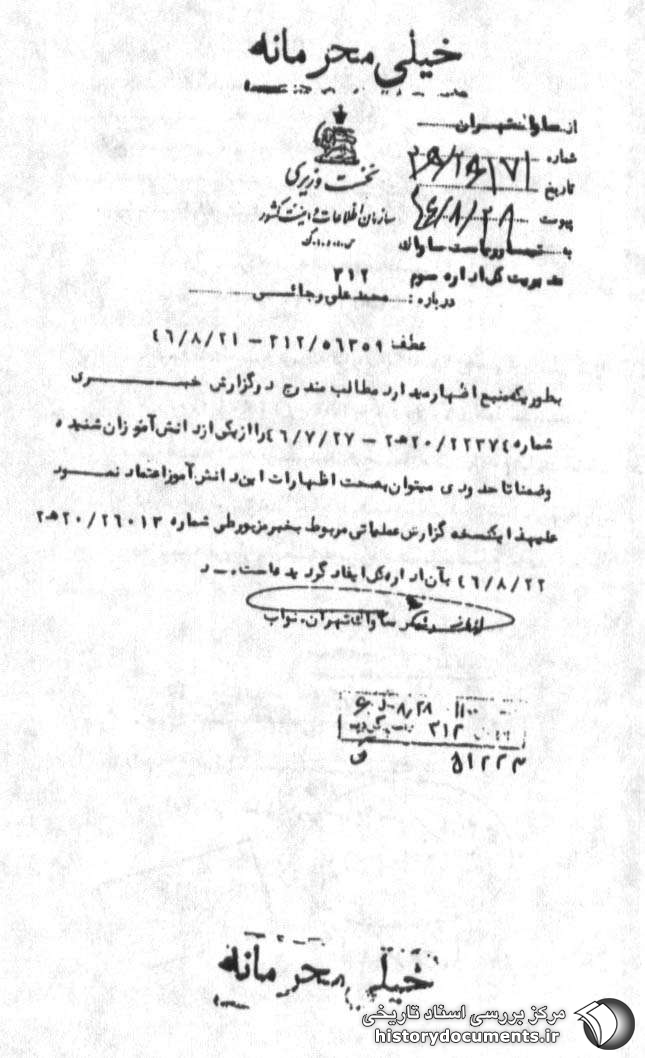 خیلی محرمانه
از ساواک تهران
شماره
تاریخ ۴۶/۸/۲۸
پیوست
نخست وزیری
سازمان اطلاعات و امنیت کشور
به تیمسار ریاست ساواک
مدیریت کل اداره سوم ۳۱۲
درباره : محمد علی رجائی
عطف ۳۱۲/۵۶۳۵۹ – ۴۶/۸/۲۱
بطوریکه منبع اظهار میدارد مطالب مندرج در گزارش خبری
شماره ۲۲۳۷۴/۲۰ه۲ – ۴۶/۷/۲۷ را از یکی از دانش آموزان شنیده
و ضمنا تا حدودی میتوان بصحت اظهارات این دانش آموز اعتماد نمود
علیهذا یکنسخه گزارش عملیاتی مربوط بخبر مزبور طی شماره ۲۶۰۱۳/۲۰ه۲
۴۶/۸/۲۲ بآن اداره کل ایفاد گردیده است. ر
ساواک تهران. نواب
۱۱۰۰ ۲۸/۸
۳۱۲
۵۱۲۲۳
خیلی محرمانه
مرکز بررسی اسناد تاریخی
historydocuments.ir